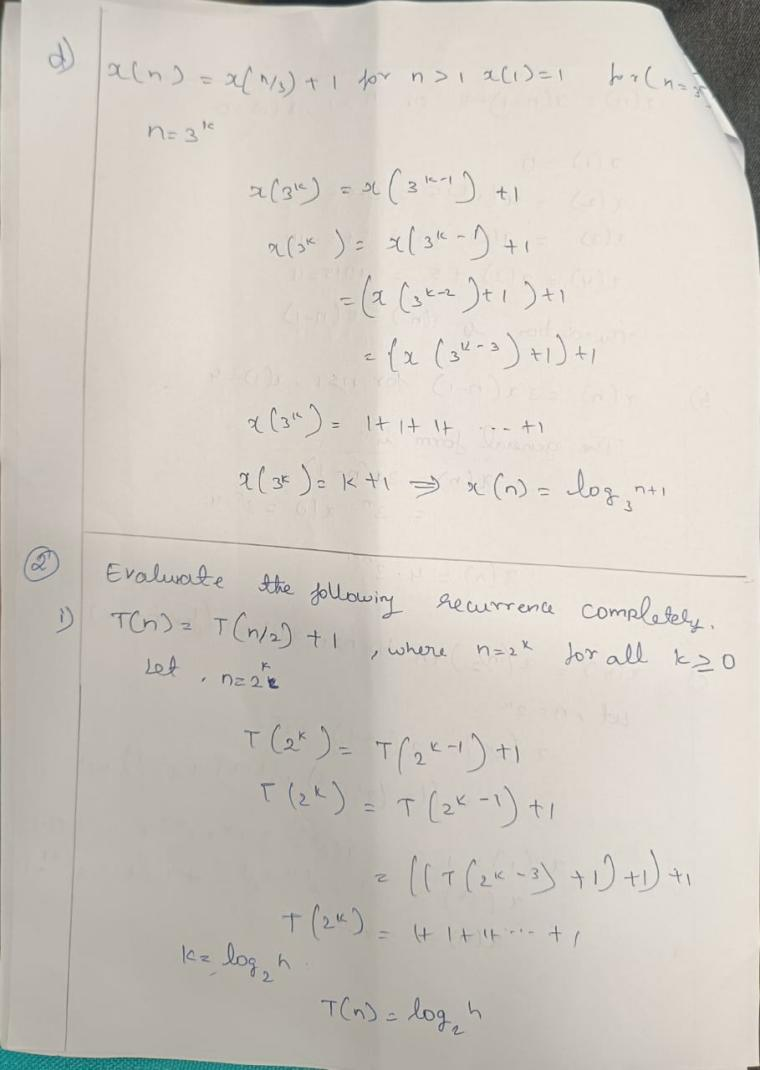 d) x(n) = x(n/3) + 1 for n > 1 x(1) = 1 for (n = 3
n = 3^k
x(3^k) = x(3^{k-1}) + 1
x(3^k) = x(3^{k-1}) + 1
= (x(3^{k-2}) + 1) + 1
= (x(3^{k-3}) + 1) + 1
x(3^k) = 1 + 1 + 1 + ... + 1
x(3^k) = k + 1 ⇒ x(n) = log_3 n+1
② Evaluate the following recurrence completely.
i) T(n) = T(n/2) + 1, where n = 2^k for all k ≥ 0
Let, n = 2^k
T(2^k) = T(2^{k-1}) + 1
T(2^k) = T(2^{k-1}) + 1
= ((T(2^{k-3}) + 1) + 1) + 1
T(2^k) = 1 + 1 + 1 + ... + 1
k = log_2 n.
T(n) = log_2 n